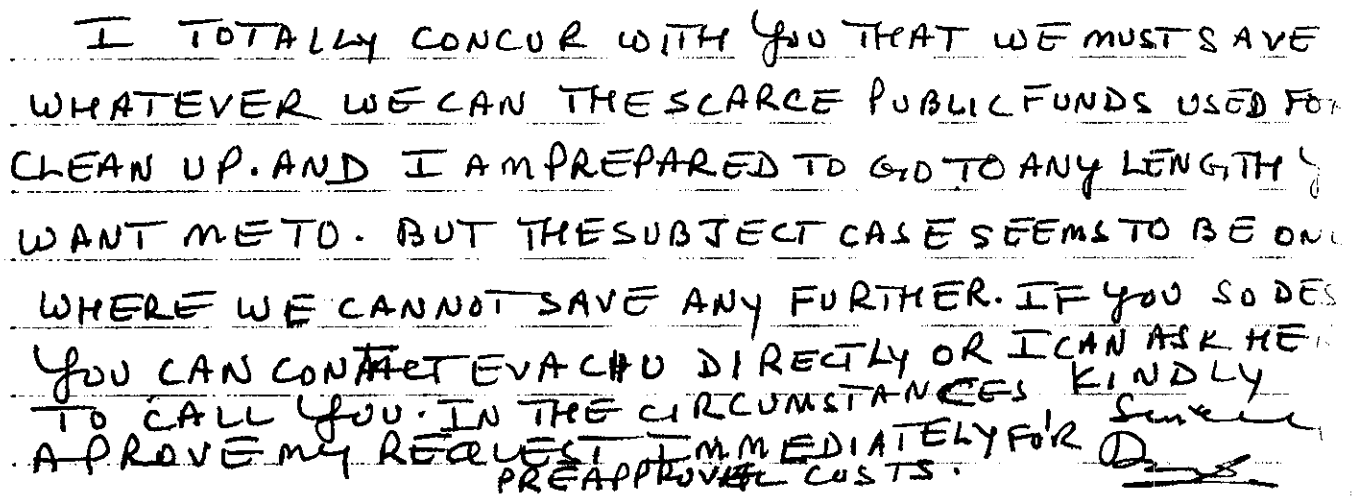 I TOTALLY CONCUR WITH YOU THAT WE MUST SAVE
WHATEVER WE CAN THE SCARCE PUBLIC FUNDS USED FOR
CLEAN UP. AND I AM PREPARED TO GO TO ANY LENGTH
WANT ME TO. BUT THE SUBJECT CASE SEEMS TO BE ON
WHERE WE CANNOT SAVE ANY FURTHER. IF YOU SO DES
YOU CAN CONTACT EVA CHU DIRECTLY OR I CAN ASK HE
TO CALL YOU. IN THE CIRCUMSTANCES KINDLY
APROVE MY REQUEST IMMEDIATELY FOR
PREAPPROVAL COSTS.